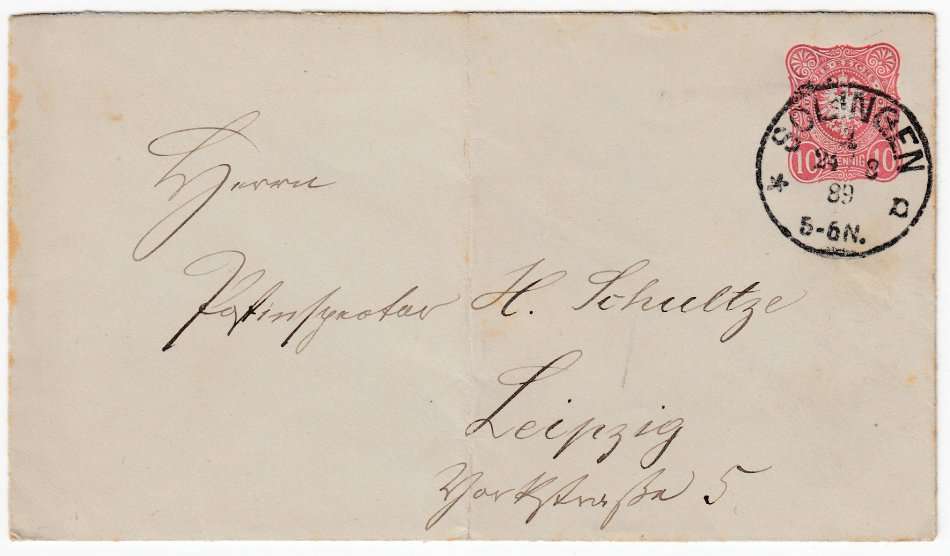 SOLINGEN
24 8
89
5-6N.
* a
10 PFENNIG 10
Herrn
Postinspector H. Schultze
Leipzig
Yorkstraße 5